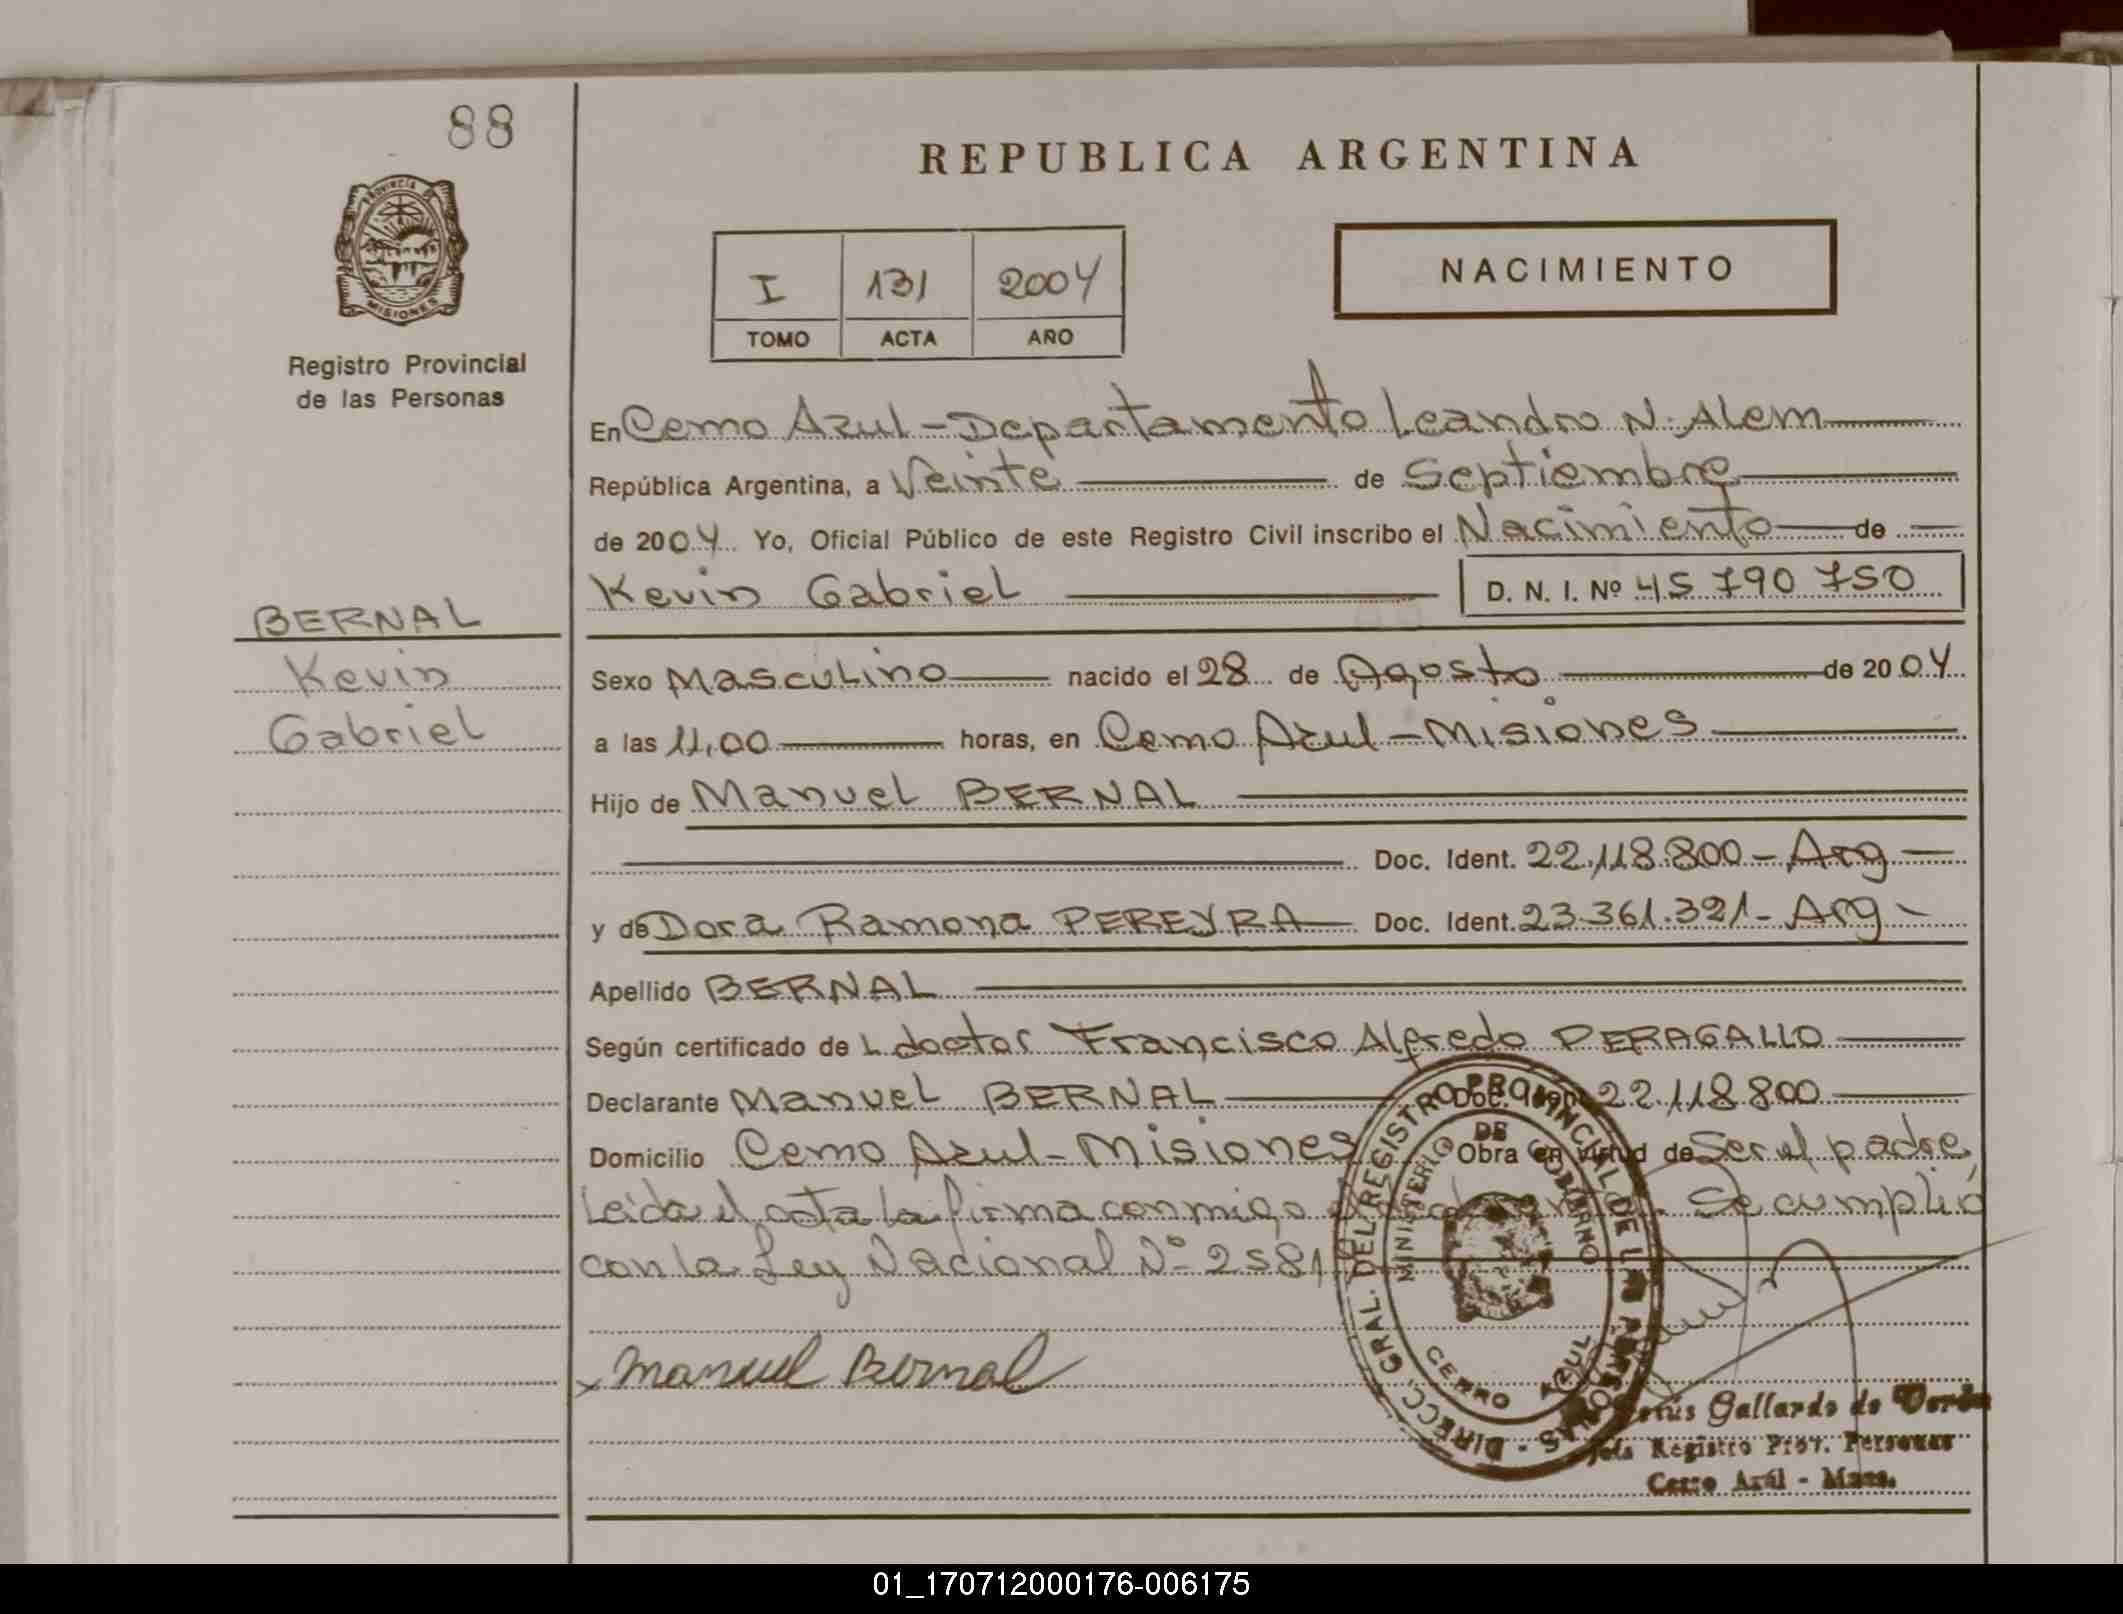 88
REPUBLICA ARGENTINA
PROVINCIA D
MISIONES
Registro Provincial
de las Personas
I 131 2004
TOMO ACTA AÑO
NACIMIENTO
En Cerro Azul - Departamento Leandro N. Alem
República Argentina, a Veinte de Septiembre
de 2004 Yo, Oficial Público de este Registro Civil inscribo el Nacimiento de
Kevin Gabriel D. N. I. Nº 45 790 750
BERNAL
Kevin
Gabriel
Sexo Masculino nacido el 28 de Agosto de 2004
a las 11,00 horas, en Cerro Azul - Misiones
Hijo de Manuel BERNAL
Doc. Ident. 22.118.800 - Arg -
y de Dora Ramona PEREYRA Doc. Ident. 23.361.321 - Arg -
Apellido BERNAL
Según certificado de L doctor Francisco Alfredo PERAGALLO
Declarante Manuel BERNAL Doc. Ident. 22.118.800
Domicilio Cerro Azul - Misiones Obra en virtud de Ser el padre
Leida el acta la firma conmigo el declarante. Se cumplió
con la Ley Nacional Nº 2581
Manuel Bernal
DIRECC. GRAL. DEL REGISTRO PROVINCIAL DE LAS PERSONAS
MINISTERIO DE GOBIERNO
CERRO AZUL
Gallardo de
Jefa Registro Prov. Personas
Cerro Azúl - Mnes.
01_170712000176-006175